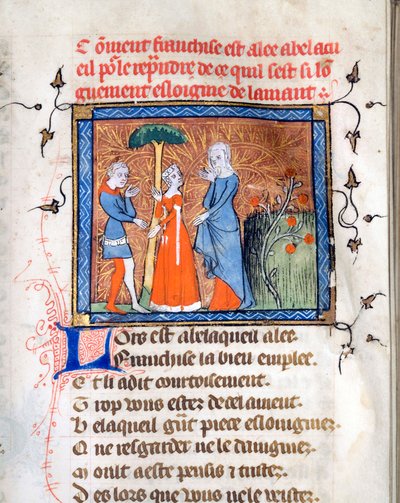 Cõment franchise est alee abelacu
eil põ le rep̃ndre de ce quil sest si lõ
guement esloigine de lamant
Lors est abelaqueil alee.
Franchise la bien emplee.
Et li a dit courtoisement.
Trop vous estez de cel ament.
Belaqueil gñt piece eslouigniez
Que resgarder ne le daigniez
Mout a este pensis et tristez
Des lors que vous ne le veistez